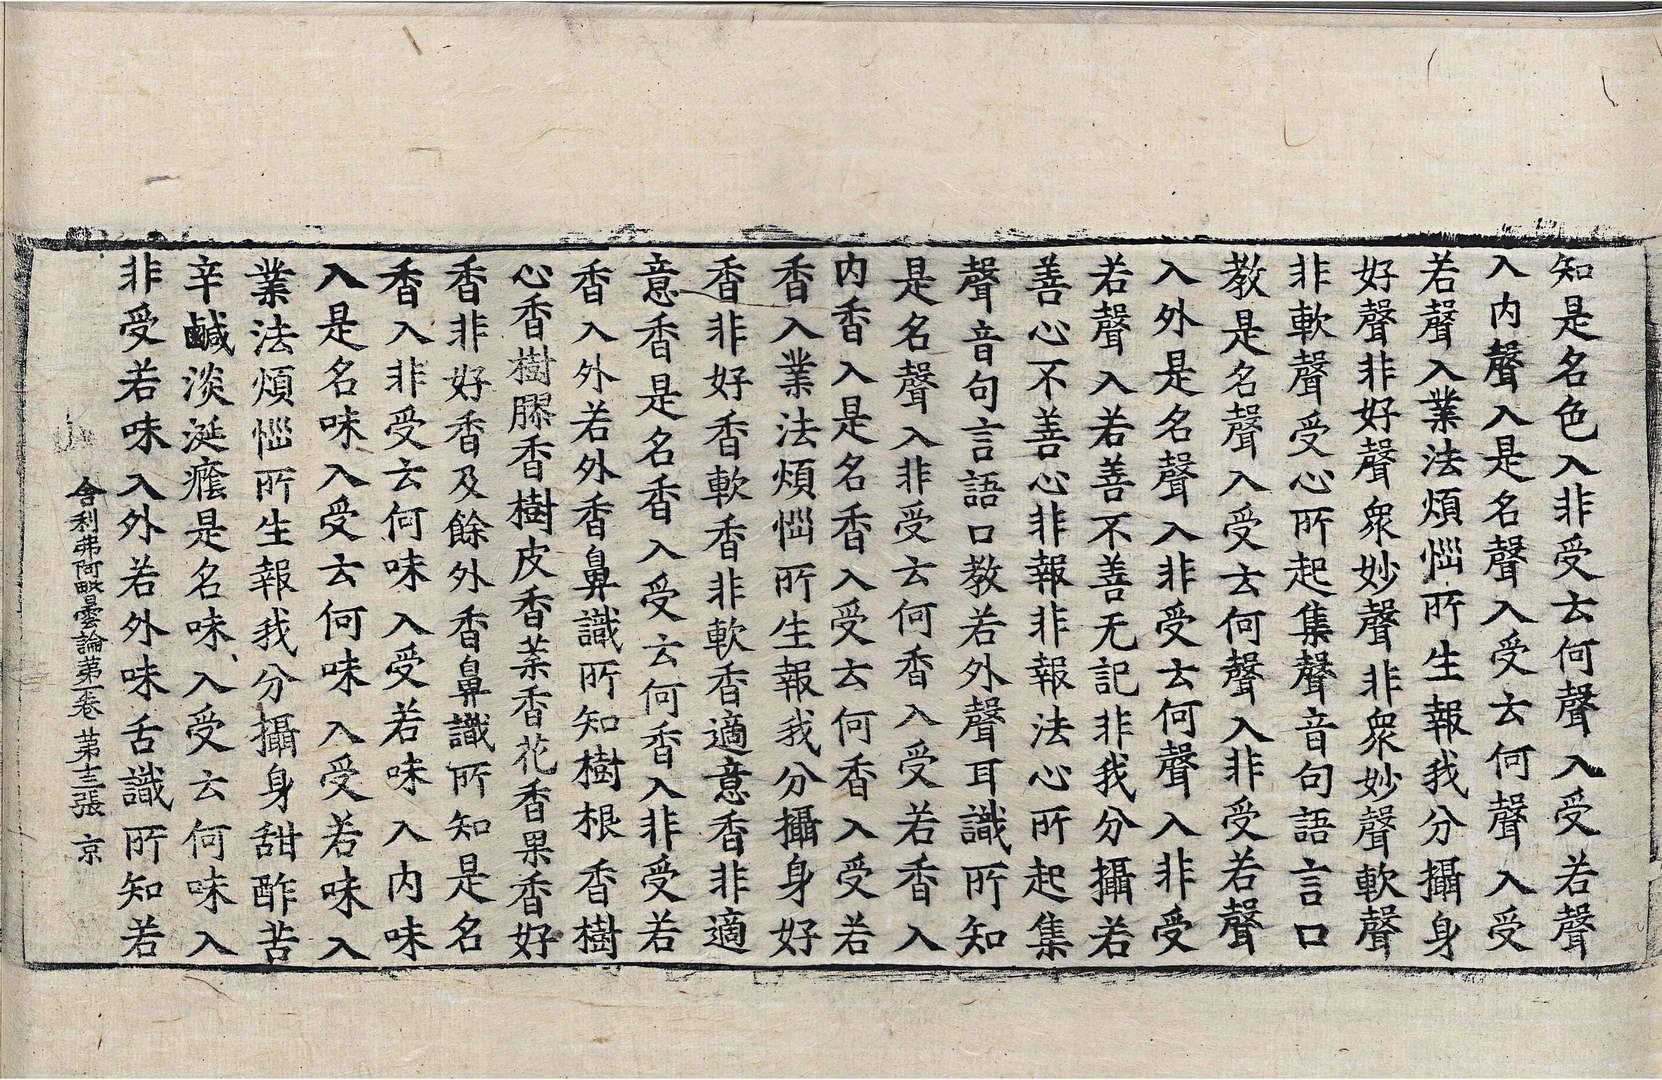 知是名色入非受云何聲入受若聲
入内聲入是名聲入受云何聲入受
若聲入業法煩惱所生報我分攝身
好聲非好聲衆妙聲非衆妙聲軟聲
非軟聲受心所起集聲音句語言口
教是名聲入受云何聲入非受若聲
入外是名聲入非受云何聲入非受
若聲入若善不善无記非我分攝若
善心不善心非報非報法心所起集
聲音句言語口教若外聲耳識所知
是名聲入非受云何香入受若香入
内香入是名香入受云何香入受若
香入業法煩惱所生報我分攝身好
香非好香軟香非軟香適意香非適
意香是名香入受云何香入非受若
香入外若外香鼻識所知樹根香樹
心香樹膠香樹皮香葉香花香果香好
香非好香及餘外香鼻識所知是名
香入非受云何味入受若味入内味
入是名味入受云何味入受若味入
業法煩惱所生報我分攝身甜酢苦
辛鹹淡涎癊是名味入受云何味入
非受若味入外若外味舌識所知若
舍利弗阿毗曇論第一卷 第十三張 京